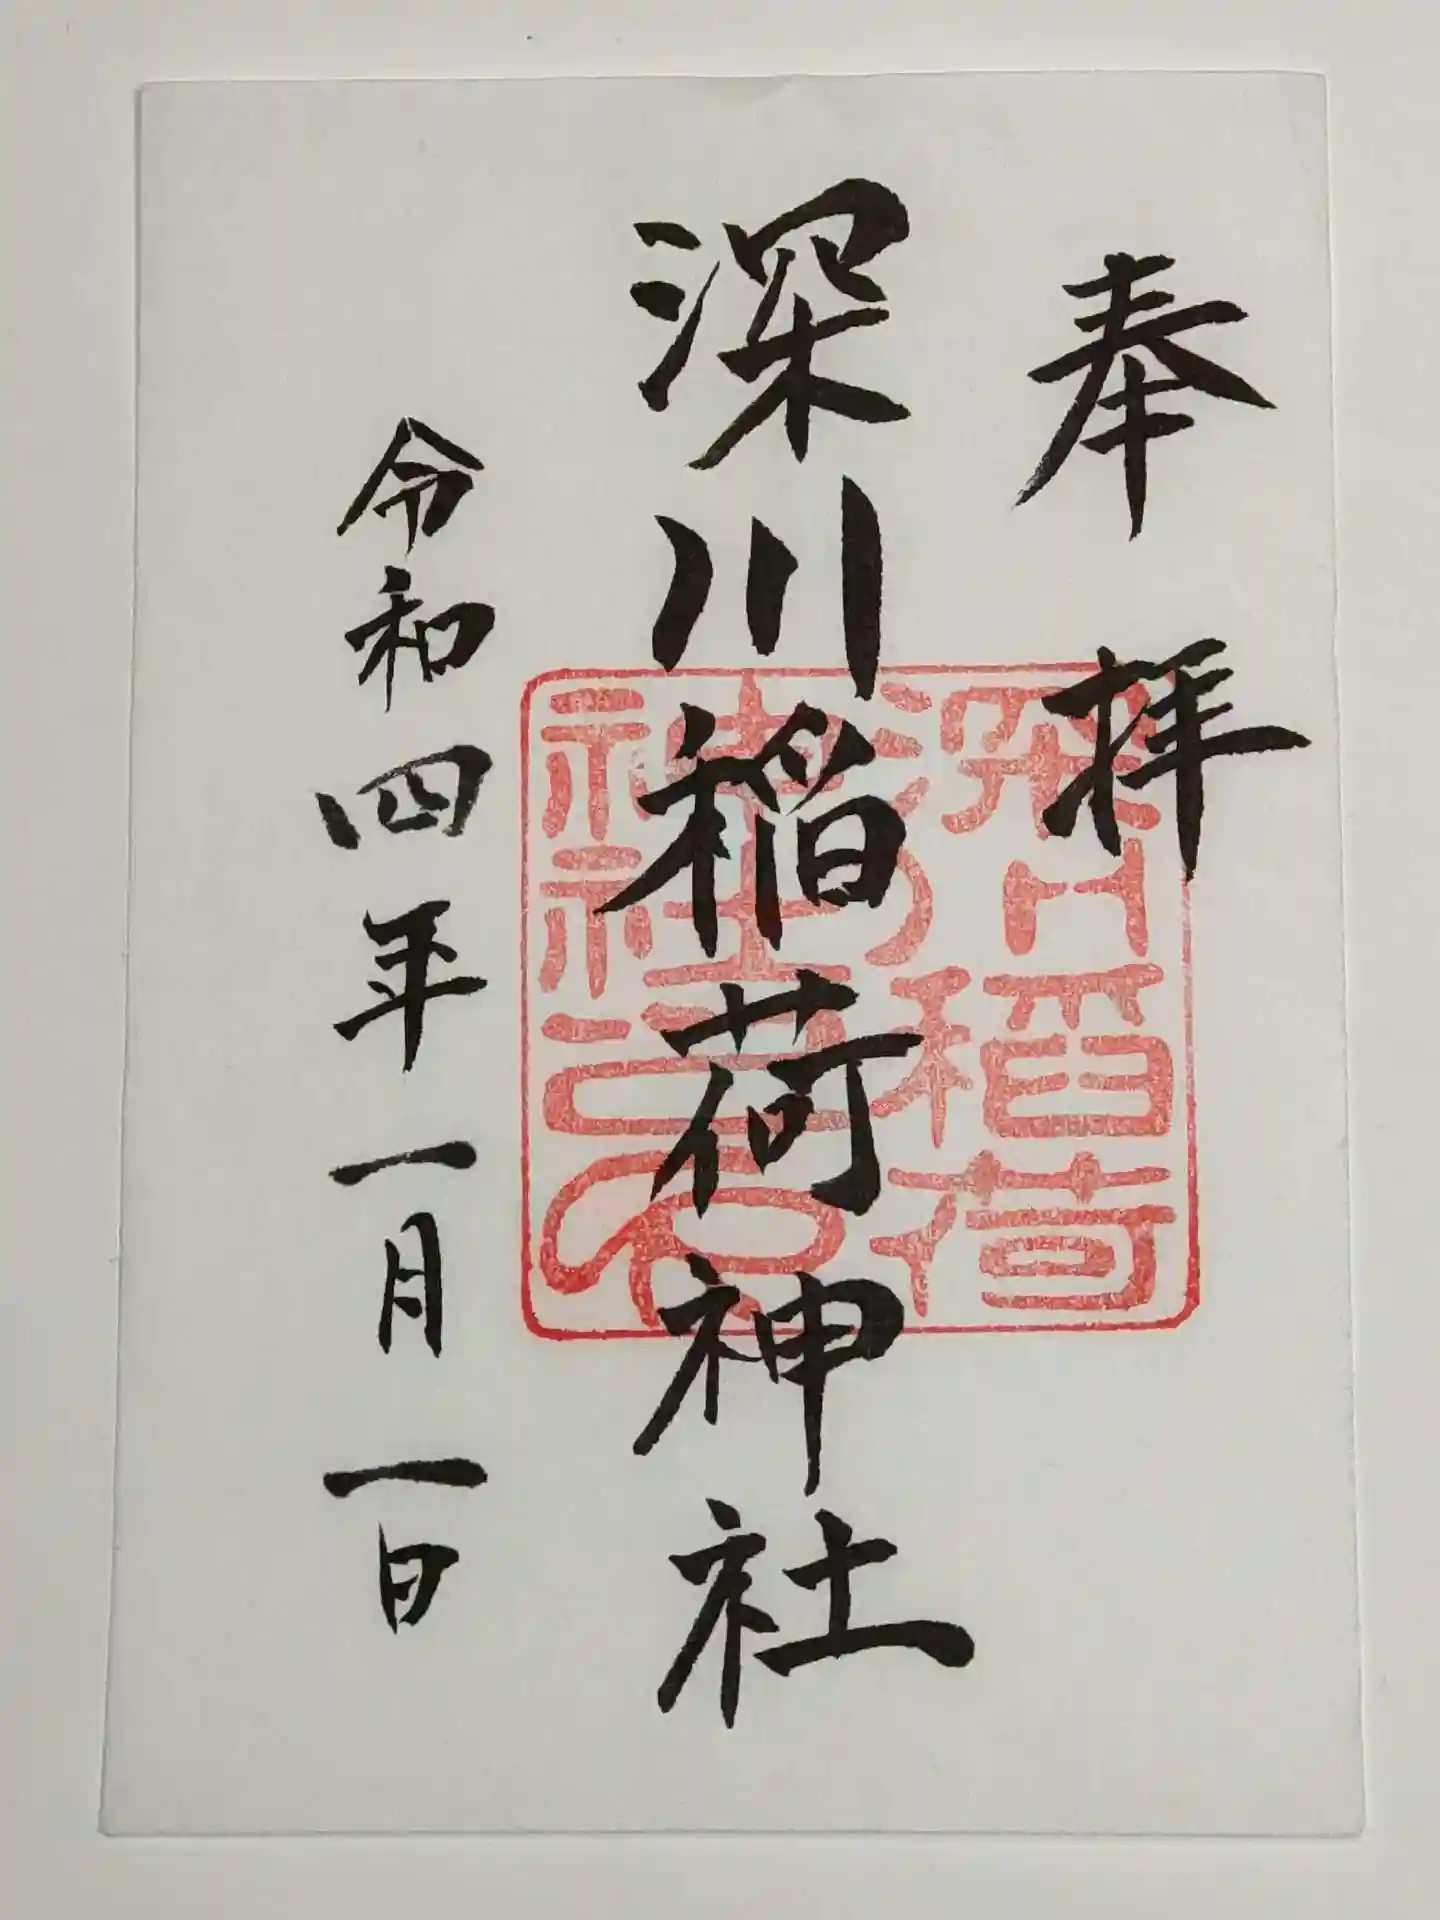 奉拝
深川稲荷神社
令和四年一月一日
深川稲荷
神社之印